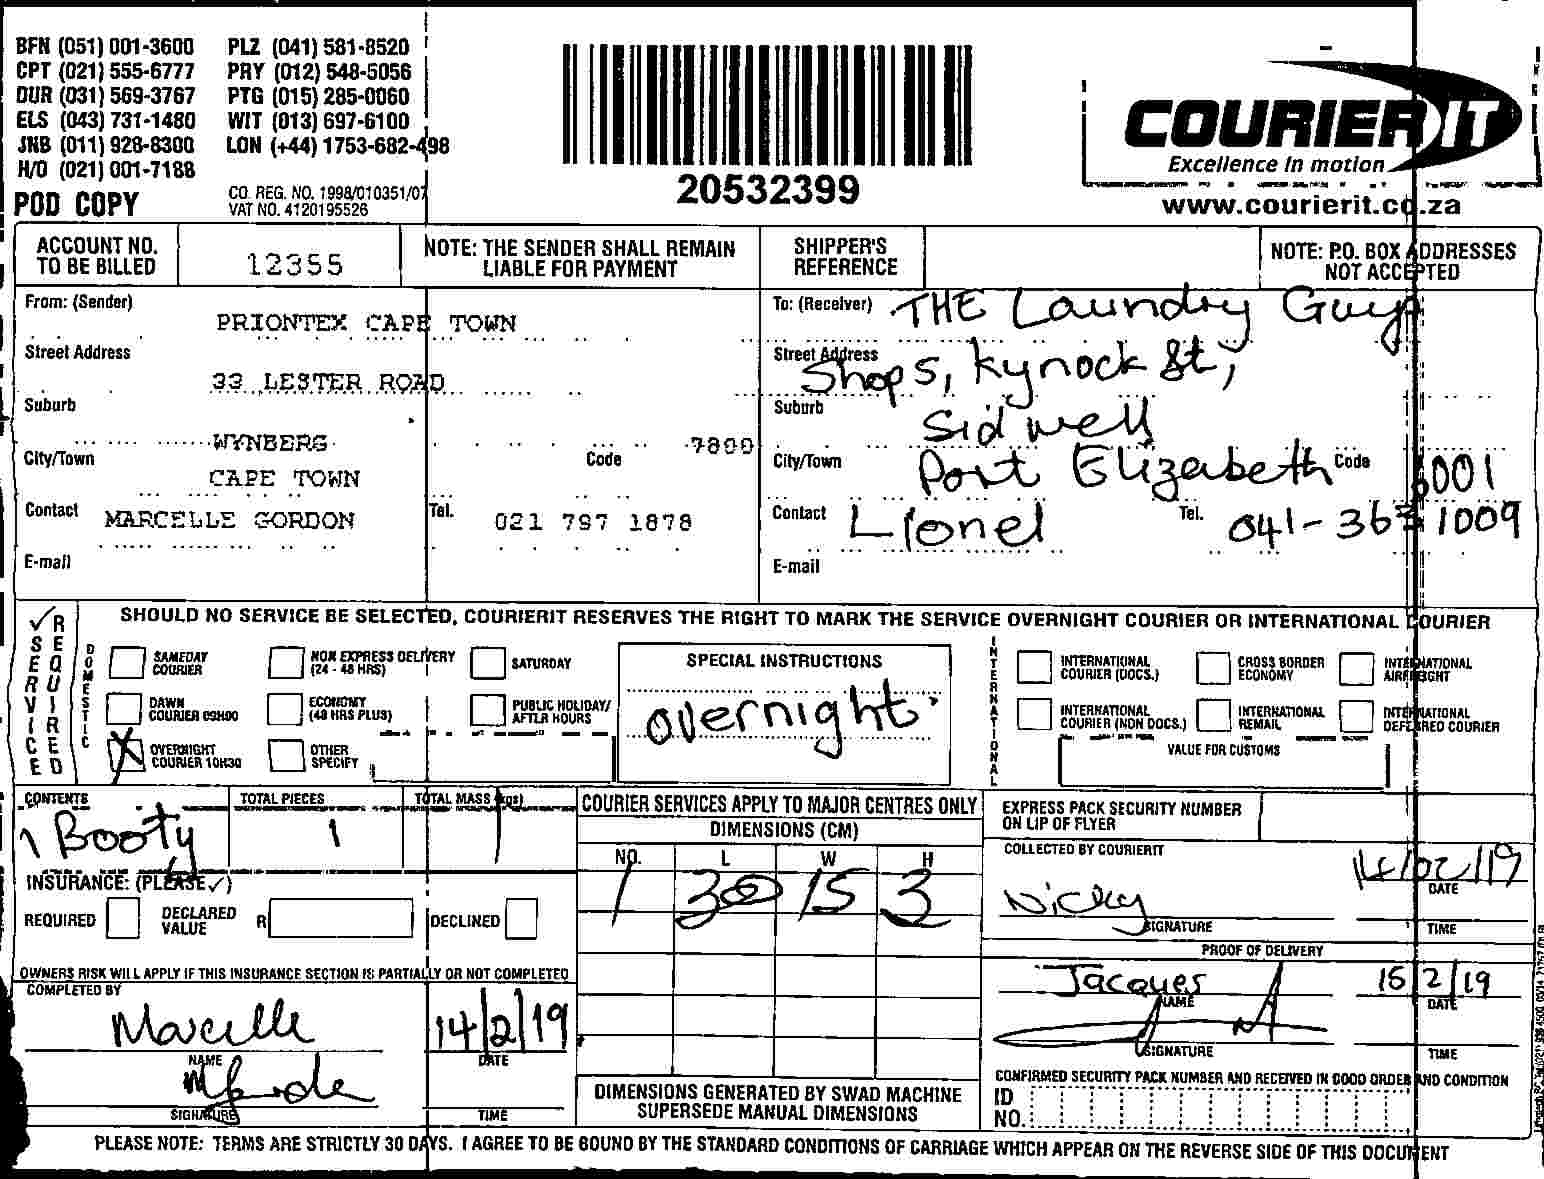 BFN (051) 001-3600 PLZ (041) 581-8520
CPT (021) 555-6777 PRY (012) 548-5056
DUR (031) 569-3767 PTG (015) 285-0060
ELS (043) 731-1480 WIT (013) 697-6100
JNB (011) 928-8300 LON (+44) 1753-682-498
H/O (021) 001-7188
POD COPY
CO. REG. NO. 1998/010351/07
VAT NO. 4120195526
20532399
COURIERIT
Excellence in motion
www.courierit.co.za
ACCOUNT NO. TO BE BILLED 12355
NOTE: THE SENDER SHALL REMAIN LIABLE FOR PAYMENT
SHIPPER'S REFERENCE
NOTE: P.O. BOX ADDRESSES NOT ACCEPTED
From: (Sender) PRIONTEX CAPE TOWN
Street Address 33 LESTER ROAD
Suburb WYNBERG
City/Town CAPE TOWN Code 7800
Contact MARCELLE GORDON Tel. 021 797 1878
E-mail
To: (Receiver) THE Laundry Guys
Street Address Shop 5, Kynock St,
Suburb Sidwell
City/Town Port Elizabeth Code 6001
Contact Lionel Tel. 041-363 1009
E-mail
SERVICE REQUIRED
SHOULD NO SERVICE BE SELECTED, COURIERIT RESERVES THE RIGHT TO MARK THE SERVICE OVERNIGHT COURIER OR INTERNATIONAL COURIER
DOMESTIC
SAMEDAY COURIER
NON EXPRESS DELIVERY (24 - 48 HRS)
SATURDAY
DAWN COURIER 09H00
ECONOMY (48 HRS PLUS)
PUBLIC HOLIDAY/ AFTER HOURS
X OVERNIGHT COURIER 10H30
OTHER SPECIFY
SPECIAL INSTRUCTIONS
overnight
INTERNATIONAL
INTERNATIONAL COURIER (DOCS.)
CROSS BORDER ECONOMY
INTERNATIONAL AIRFREIGHT
INTERNATIONAL COURIER (NON DOCS.)
INTERNATIONAL REMAIL
INTERNATIONAL DEFERRED COURIER
VALUE FOR CUSTOMS
CONTENTS 1 Booty
TOTAL PIECES 1
TOTAL MASS (kgs) 1
INSURANCE: (PLEASE ✓)
REQUIRED
DECLARED VALUE R
DECLINED
OWNERS RISK WILL APPLY IF THIS INSURANCE SECTION IS PARTIALLY OR NOT COMPLETED
COMPLETED BY
Marcelle 14/2/19
NAME DATE
SIGNATURE TIME
COURIER SERVICES APPLY TO MAJOR CENTRES ONLY
DIMENSIONS (CM)
NO. L W H
1 30 15 3
DIMENSIONS GENERATED BY SWAD MACHINE SUPERSEDE MANUAL DIMENSIONS
EXPRESS PACK SECURITY NUMBER ON LIP OF FLYER
COLLECTED BY COURIERIT
Nicky 14/02/19
DATE
SIGNATURE TIME
PROOF OF DELIVERY
Jacques 15/2/19
NAME DATE
SIGNATURE TIME
CONFIRMED SECURITY PACK NUMBER AND RECEIVED IN GOOD ORDER AND CONDITION
ID NO.
PLEASE NOTE: TERMS ARE STRICTLY 30 DAYS. I AGREE TO BE BOUND BY THE STANDARD CONDITIONS OF CARRIAGE WHICH APPEAR ON THE REVERSE SIDE OF THIS DOCUMENT